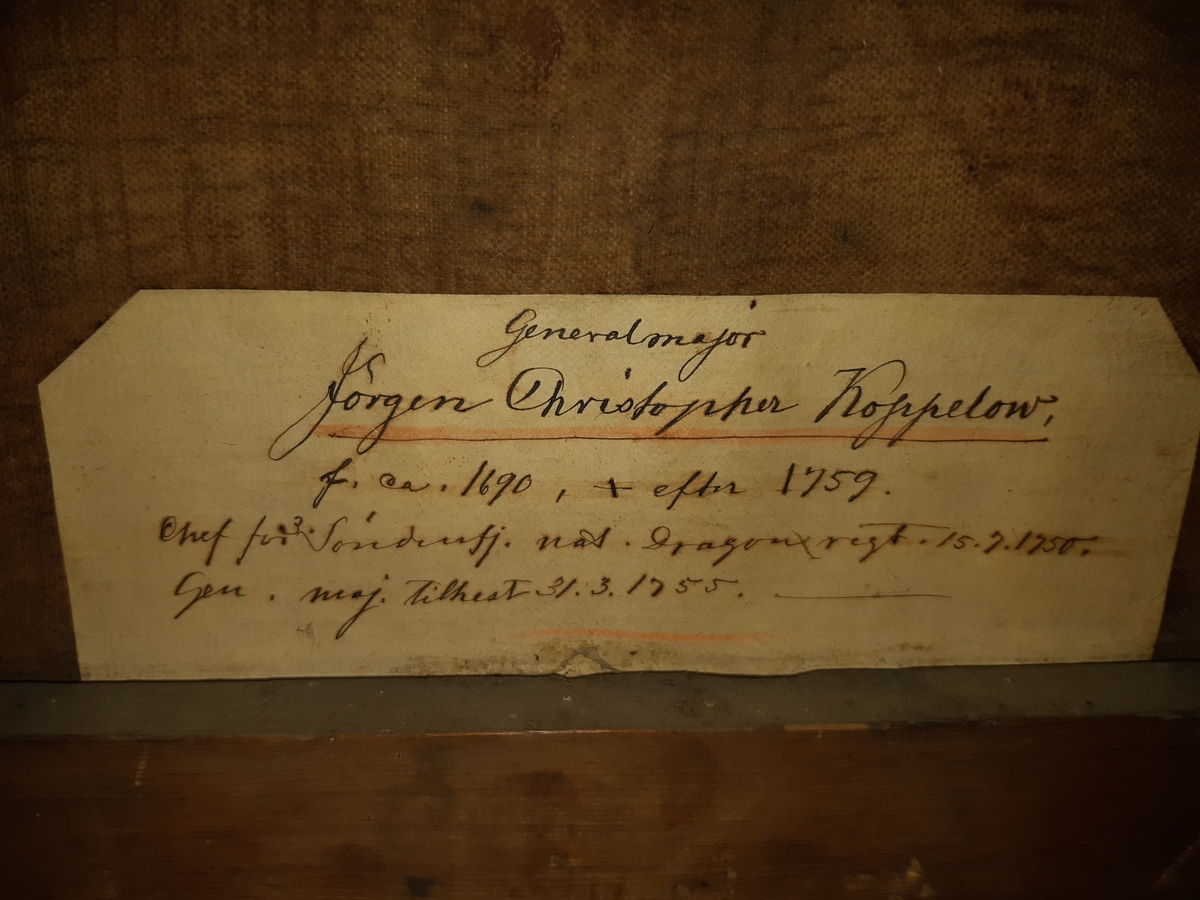 Generalmajor
Jörgen Christopher Koppelow,
f. ca. 1690, + efter 1759.
Chef for 3. Söndenfj. nat. Dragon regt. 15.7.1750.
Gen. maj. tilhest 31.3.1755.